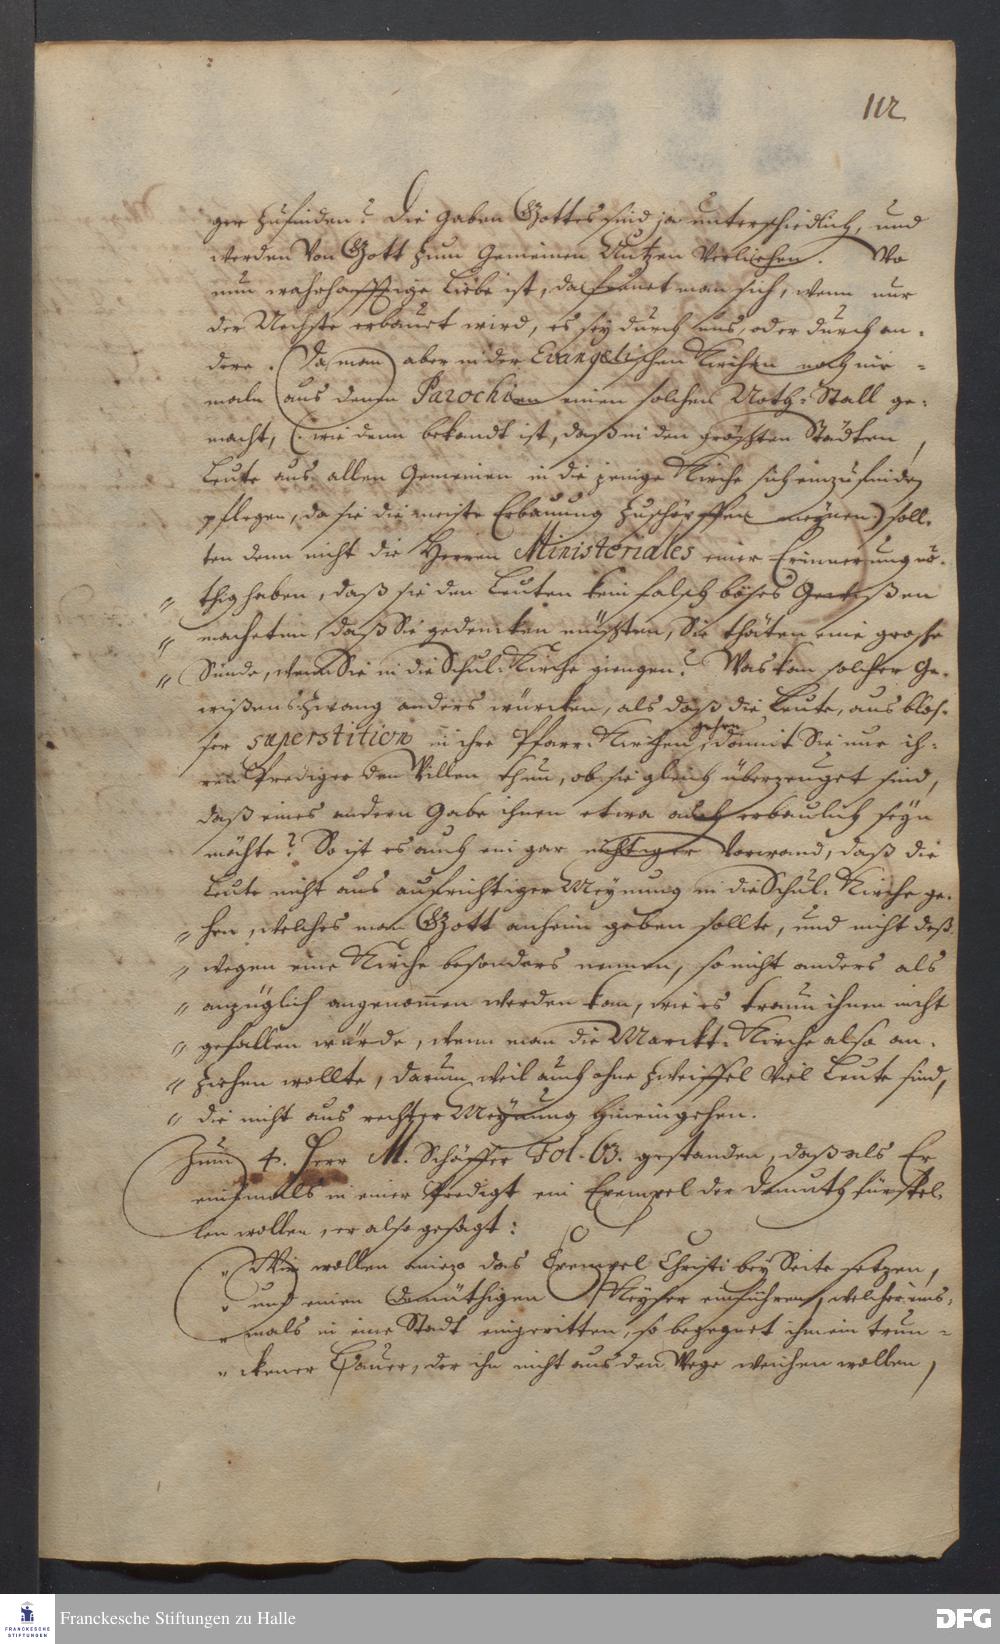 112
ger zufinden? Die Gaben Gottes sind ja unterschiedlich, und
werden von Gott zum Gemeinen Nutzen verliehen. Wo
nun wahrhafftige Liebe ist, da freuet man sich, wenn nur
der Nechste erbauet wird, es sey durch uns, oder durch an-
dere. Da man aber in der Evangelischen Kirchen noch nie-
maln aus denen Parochien einen solchen Noth-Stall ge-
macht, (wie denn bekandt ist, daß in den grösten Städten,
Leute aus allen Gemeinen in die jenige Kirche sich einzufinden
pflegen, da sie die meiste Erbauung zu schöpffen meynen) soll-
ten denn nicht die Herren Ministeriales einer Erinnerung nö-
" thig haben, daß sie den Leuten kein falsch böses Gewißen
" macheten, daß Sie gedencken müsten, Sie thäten eine grosse
" Sünde, wenn Sie in die Schul-Kirche giengen? Was kan solcher Ge-
wißens-Zwang anders würcken, als daß die Leute, aus blos-
ser superstition in ihre Pfarr-Kirchen gehen, damit Sie nur ih-
ren Prediger den Willen thun, ob sie gleich überzeuget sind,
daß eines andern Gabe ihnen etwa auch erbaulich seyn
möchte? So ist es auch ein gar nichtiger Vorwand, daß die
Leute nicht aus aufrichtiger Meynung in die Schul-Kirche ge-
" hen, welches man Gott anheim geben sollte, und nicht deß-
" wegen eine Kirche besonders nennen, so nicht anders als
" anzüglich angenommen werden kan, wie es traun ihnen nicht
" gefallen würde, wenn man die Marckt-Kirche also an-
" ziehen wollte, darum weil auch ohne Zweiffel viel Leute sind,
" die nicht aus rechter Meynung hineingehen.
Zum 4. Herr M. Schäffer Fol. 63. gestanden, daß als Er
einsmals in einer Predigt ein Exempel der Demuth fürstel-
len wollen, er also gesagt:
" Wir wollen anjezo das Exempel Christi bey Seite setzen,
" und einen demüthigen Keyser einführen, welcher eins-
" mals in eine Stadt eingeritten, so begegnet ihm ein trun-
" ckener Bauer, der ihn nicht aus den Wege weichen wollen,
Franckesche Stiftungen zu Halle
FRANCKESCHE STIFTUNGEN
DFG